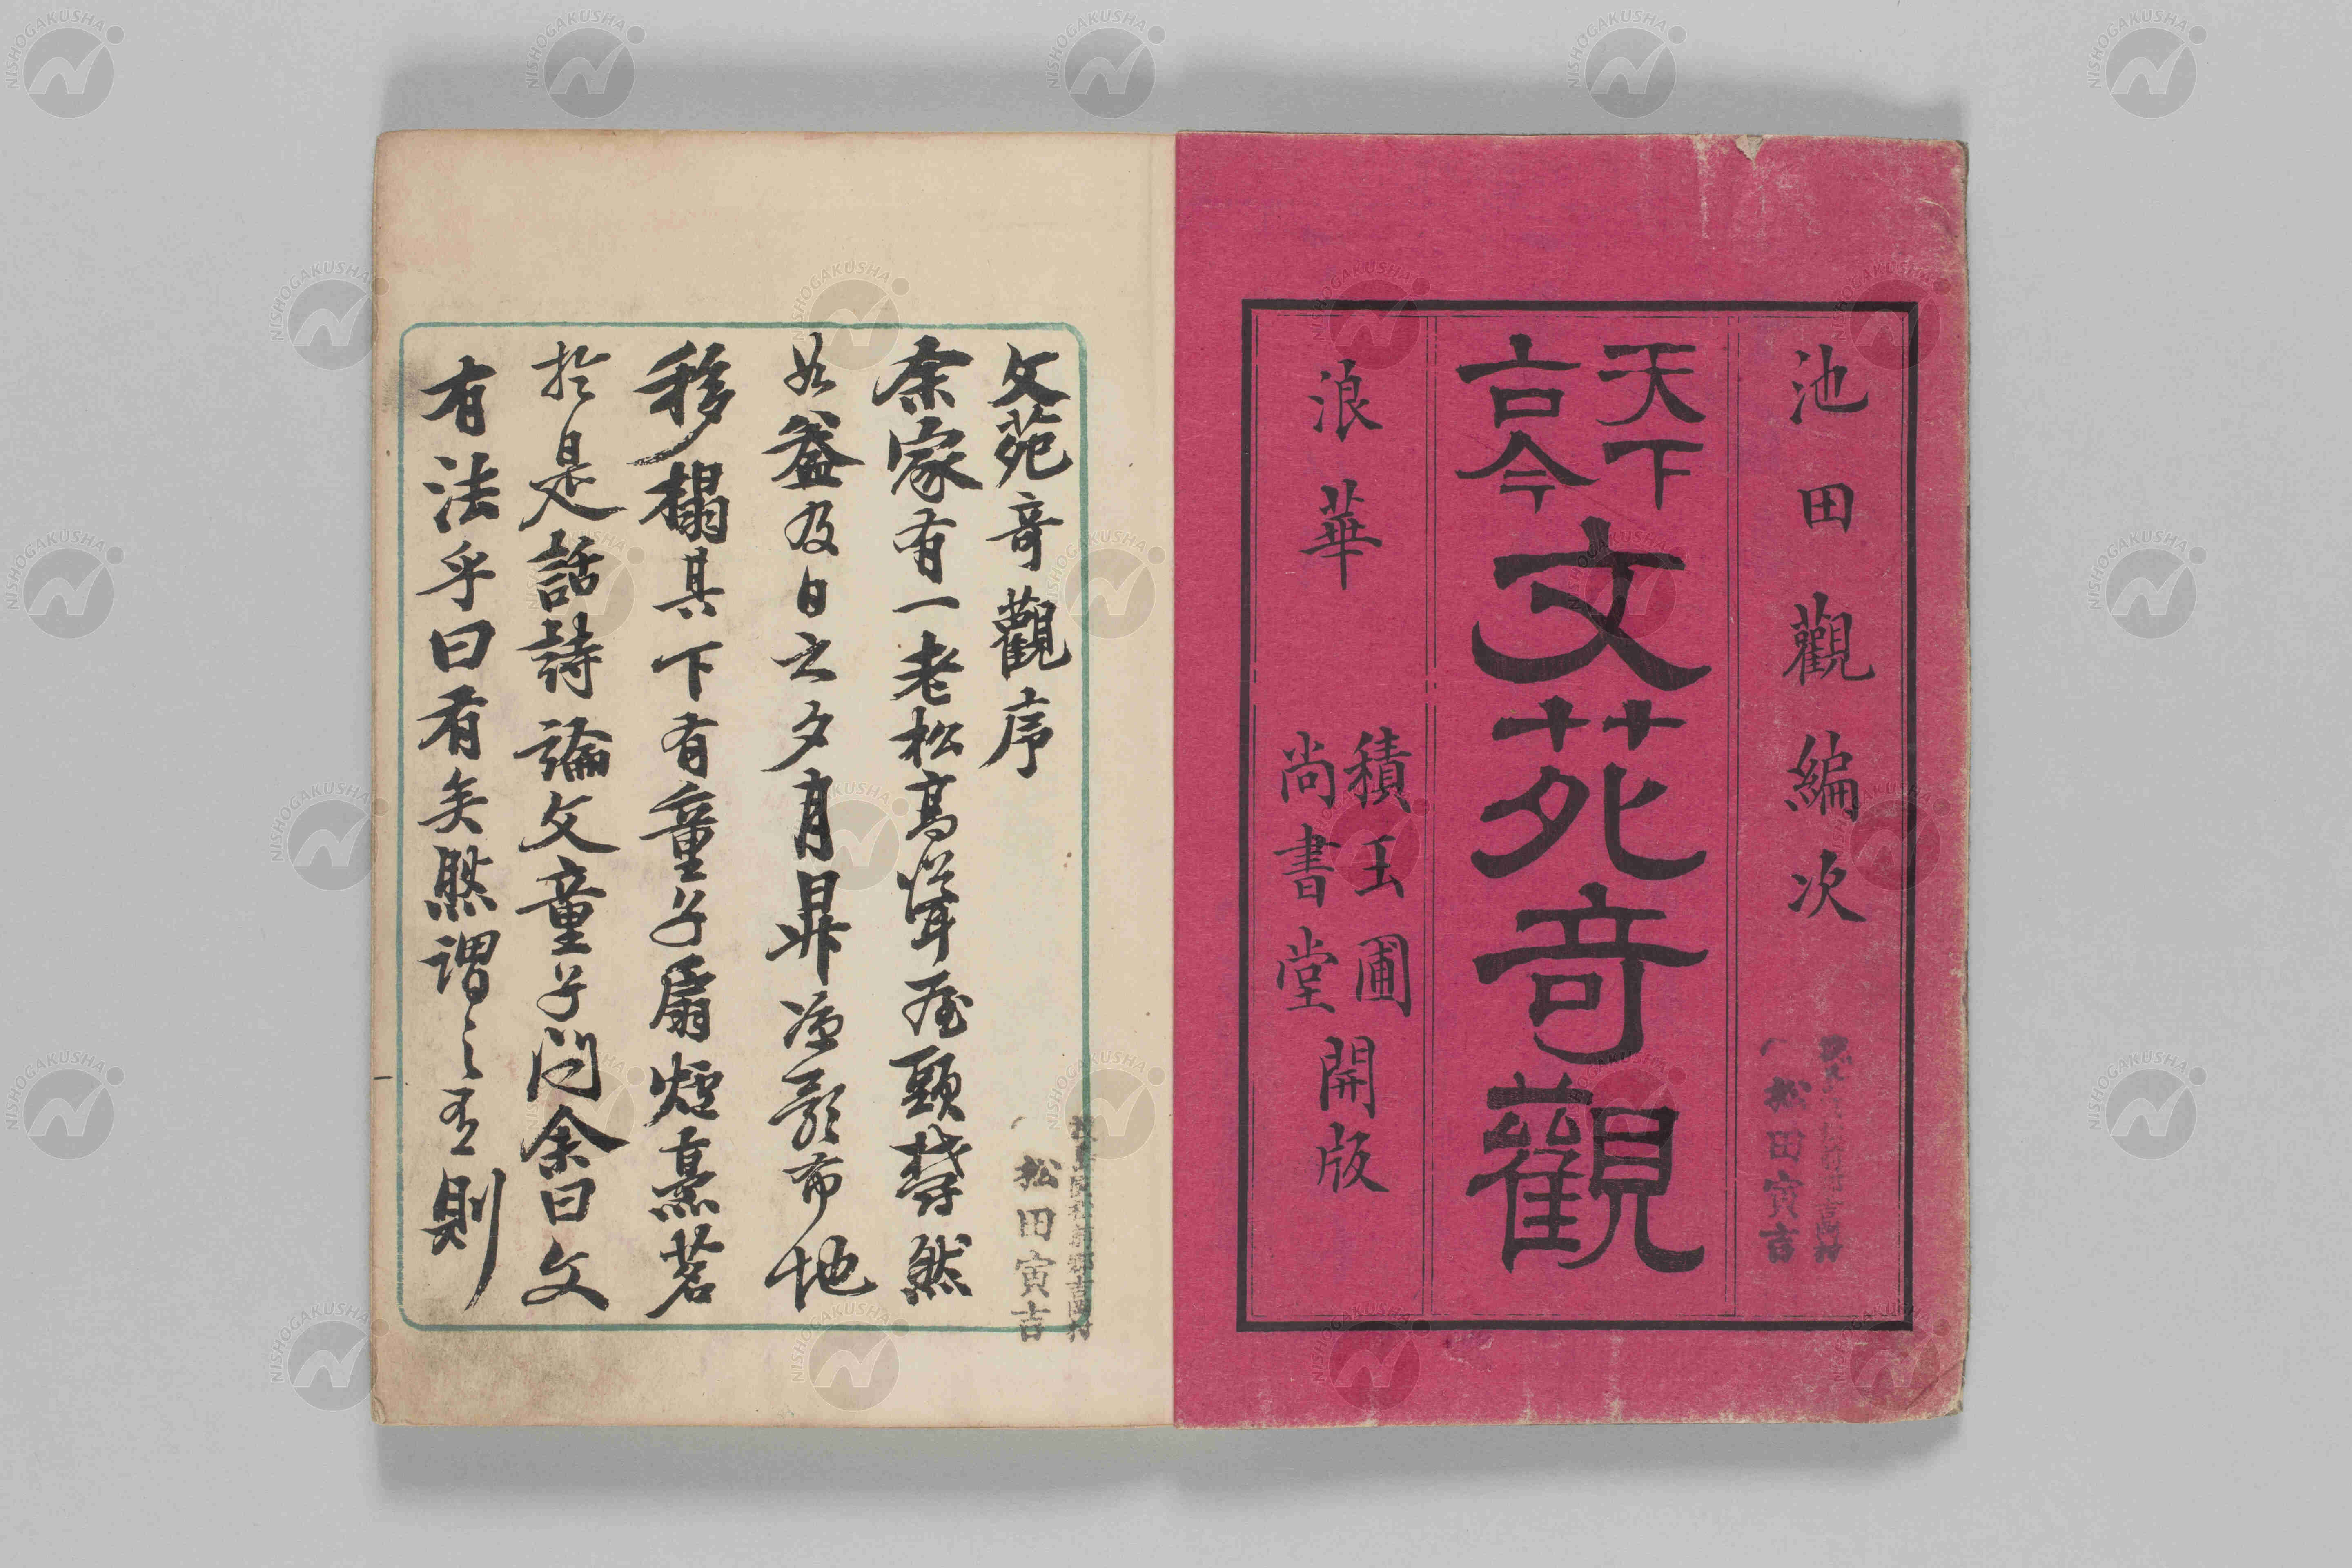 池田觀編次
天下
古今
文苑奇觀
浪華
積玉圃
尚書堂
開版
松田寅吉
文苑奇觀序
余家有一老松高聳屋頭欝然
如盖及日之夕月昇凉影布地
移榻其下有童子扇爐熹茗
於是話詩論文童子問余曰文
有法乎曰有矣然謂之有則
松田寅吉
NISHOGAKUSHA